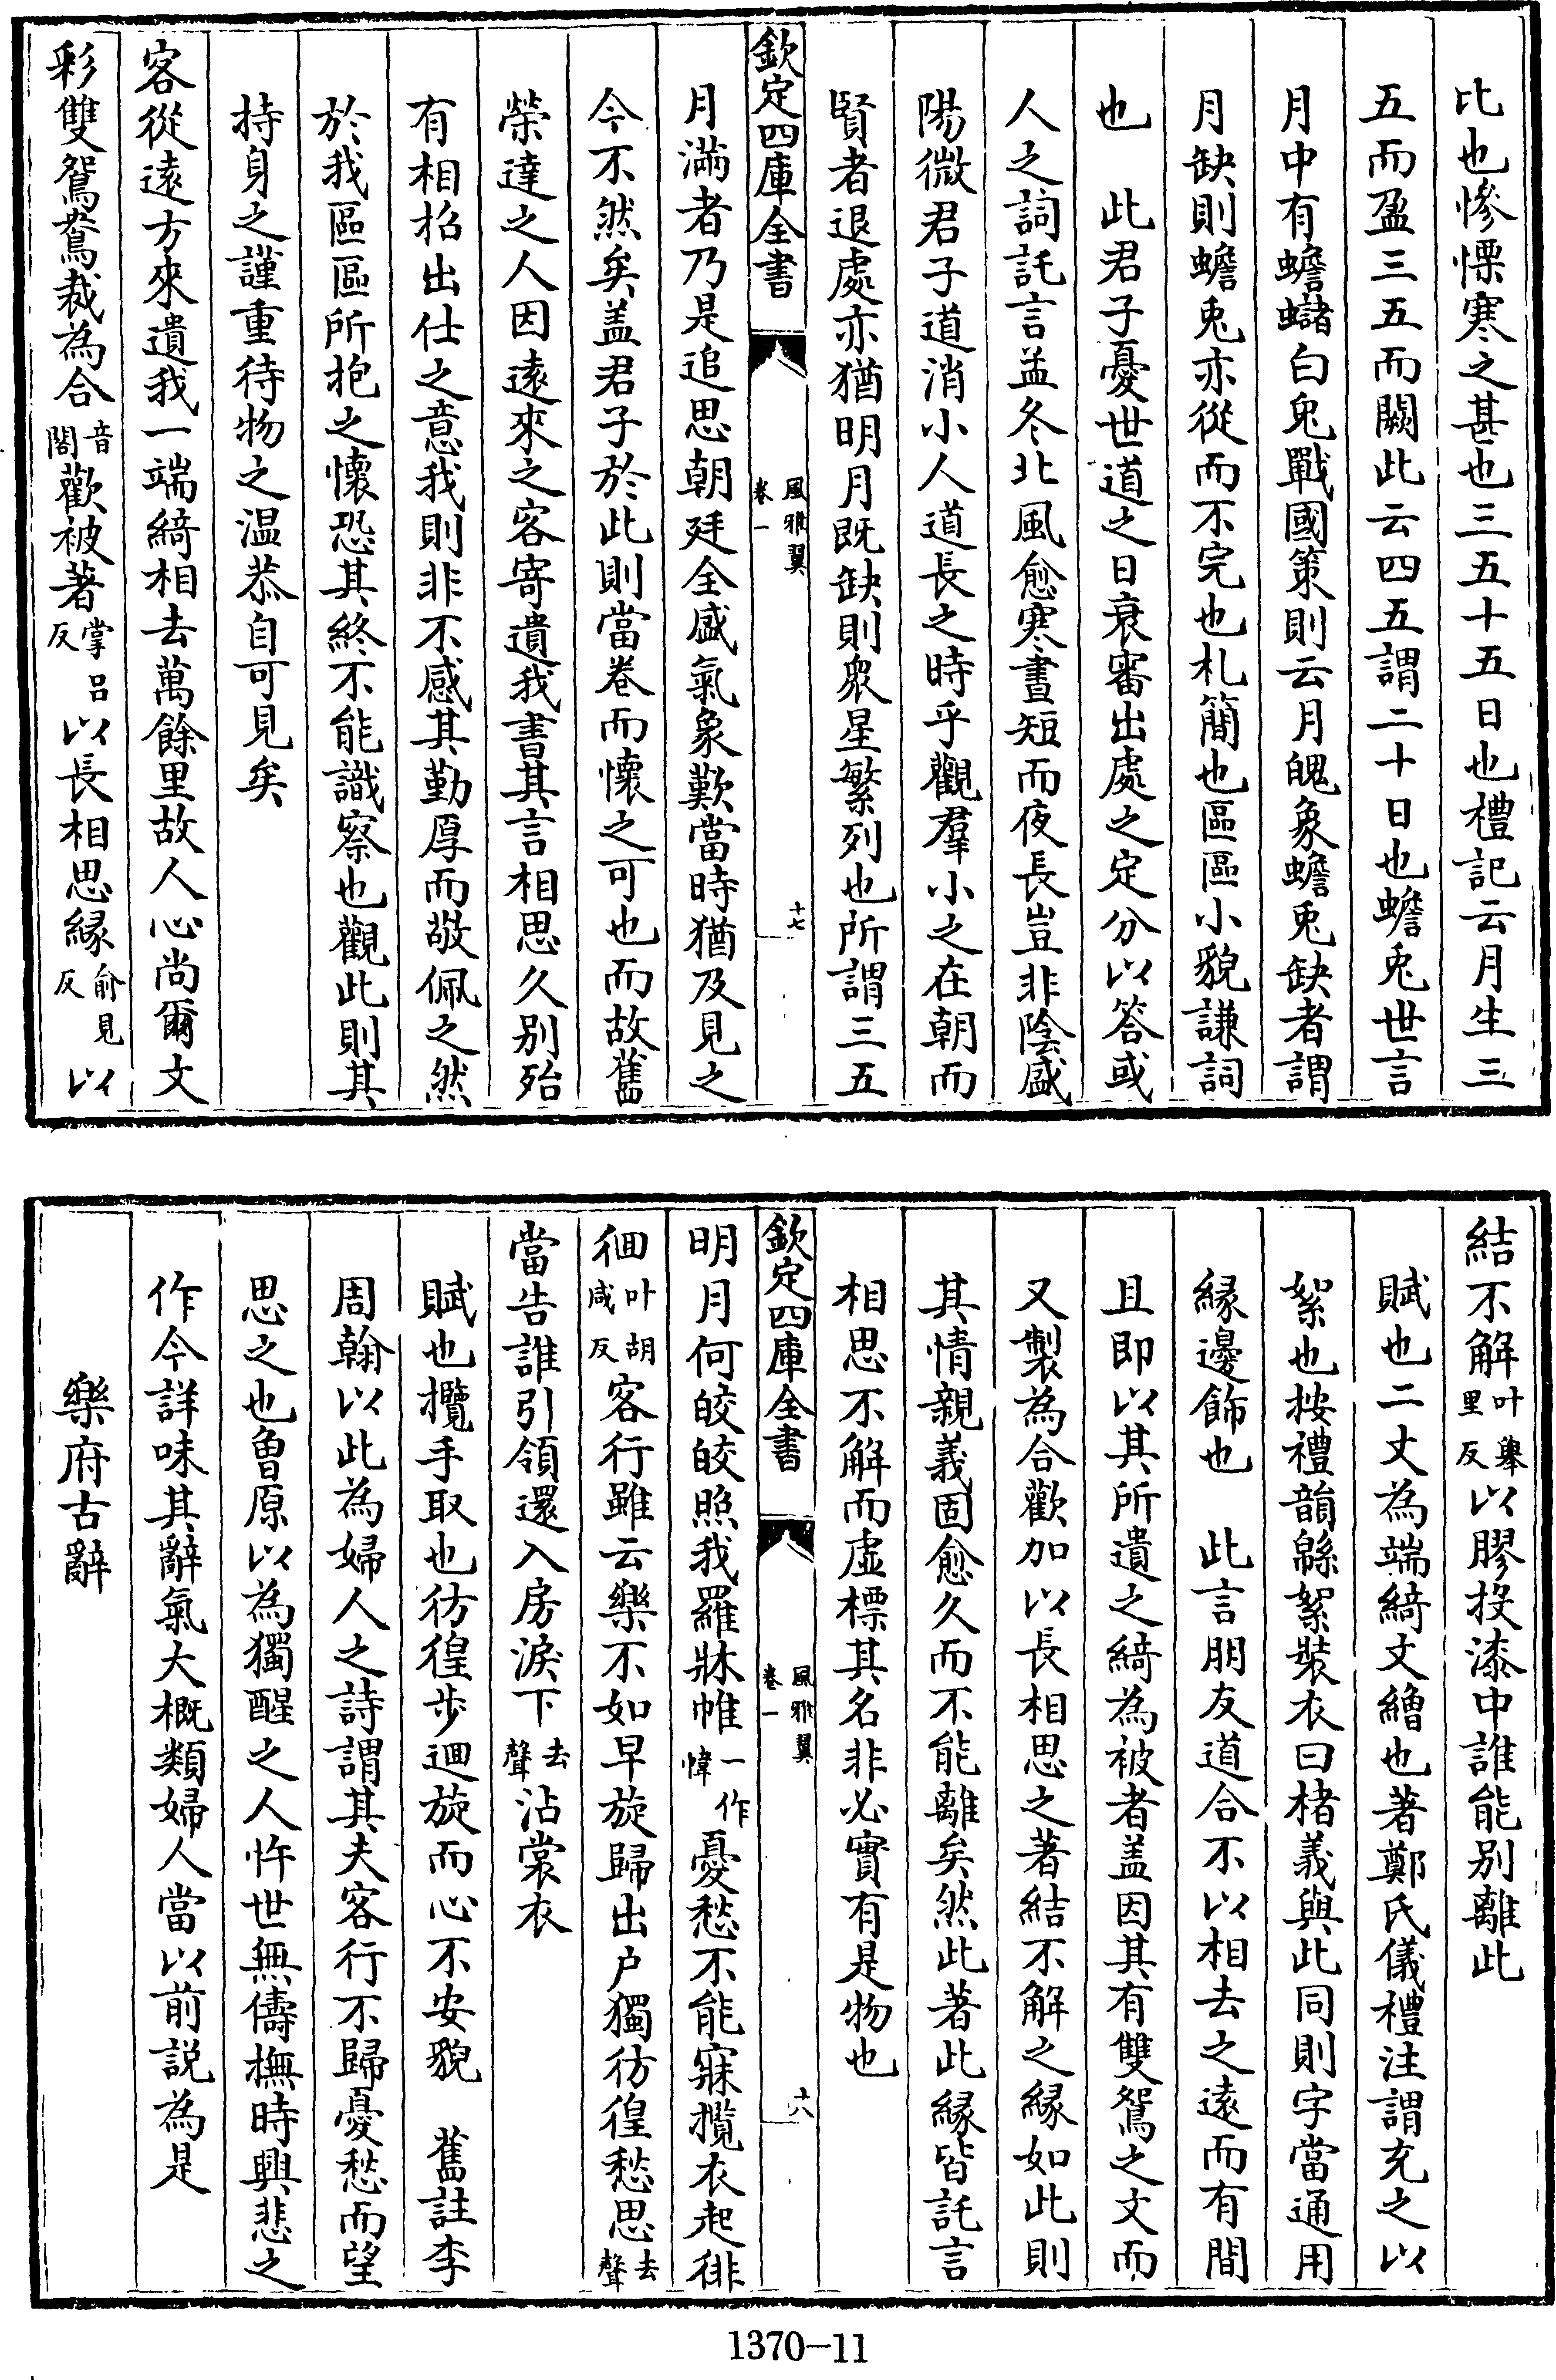 比也慘慄寒之甚也三五十五日也禮記云月生三
五而盈三五而闕此云四五謂二十日也蟾兎世言
月中有蟾蠩白兎戰國策則云月魄象蟾兎缺者謂
月缺則蟾兎亦從而不完也札簡也區區小貌謙詞
也　此君子憂世道之日衰審出處之定分以答或
人之詞託言孟冬北風愈寒晝短而夜長豈非陰盛
陽微君子道消小人道長之時乎觀羣小之在朝而
賢者退處亦猶明月既缺則衆星繁列也所謂三五
欽定四庫全書　風雅翼卷一　十七
月滿者乃是追思朝廷全盛氣象歎當時猶及見之
今不然矣盖君子於此則當卷而懷之可也而故舊
榮達之人因遠來之客寄遺我書其言相思久别殆
有相招出仕之意我則非不感其勤厚而敬佩之然
於我區區所抱之懷恐其終不能識察也觀此則其
持身之謹重待物之温恭自可見矣
客從遠方來遺我一端綺相去萬餘里故人心尚爾文
彩雙鴛鴦裁為合音閤歡被著掌吕反以長相思緣俞見反以
結不解叶舉里反以膠投漆中誰能别離此
賦也二丈為端綺文繒也著鄭氏儀禮注謂充之以
絮也按禮韻緜絮裝衣曰楮義與此同則字當通用
緣邊飾也　此言朋友道合不以相去之遠而有間
且即以其所遺之綺為被者盖因其有雙鴛之文而
又製為合歡加以長相思之著結不解之緣如此則
其情親義固愈久而不能離矣然此著此緣皆託言
相思不解而虚標其名非必實有是物也
欽定四庫全書　風雅翼卷一　十八
明月何皎皎照我羅牀幃一作幃憂愁不能寐攬衣起徘
徊叶胡咸反客行雖云樂不如早旋歸出户獨彷徨愁思去聲
當告誰引領還入房淚下去聲沾裳衣
賦也攬手取也彷徨步迴旋而心不安貌　舊註李
周翰以此為婦人之詩謂其夫客行不歸憂愁而望
思之也曾原以為獨醒之人忤世無儔撫時興悲之
作今詳味其辭氣大概類婦人當以前説為是
樂府古辭
1370-11